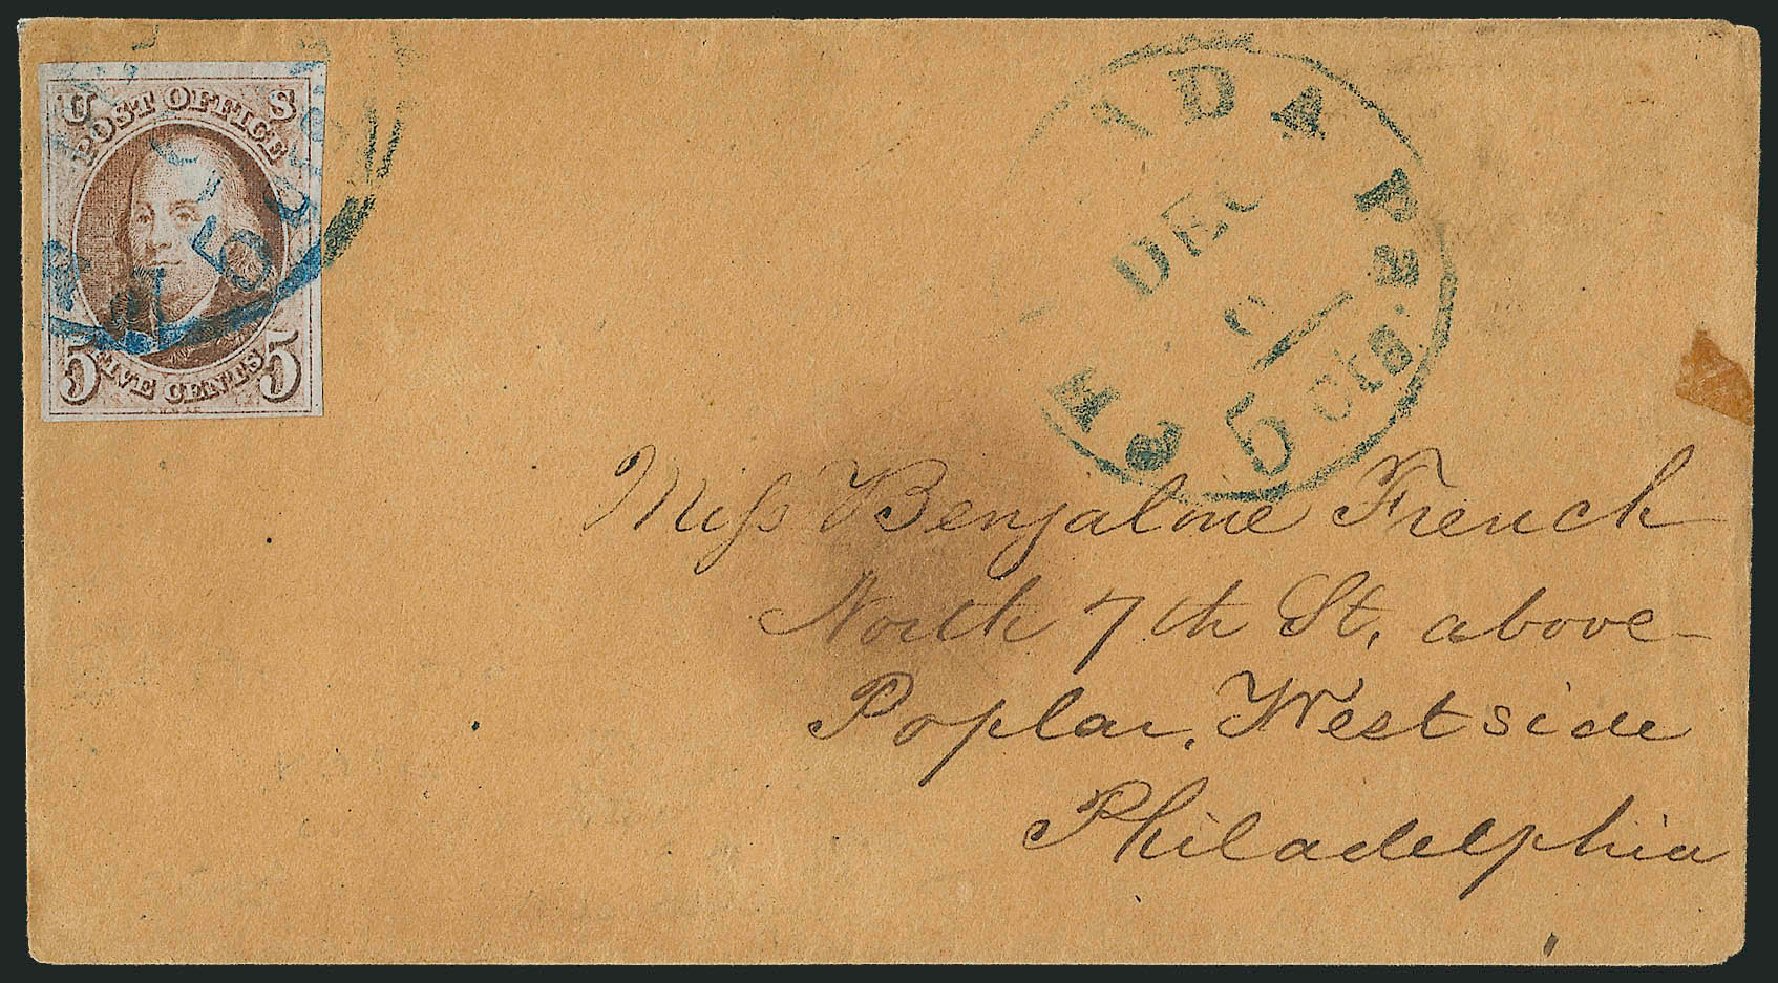 U S
POST OFFICE
5 FIVE CENTS 5
5
ADA Pa
DEC
5 cts.
Miss Benjaline French
North 7th St, above
Poplar, West side
Philadelphia